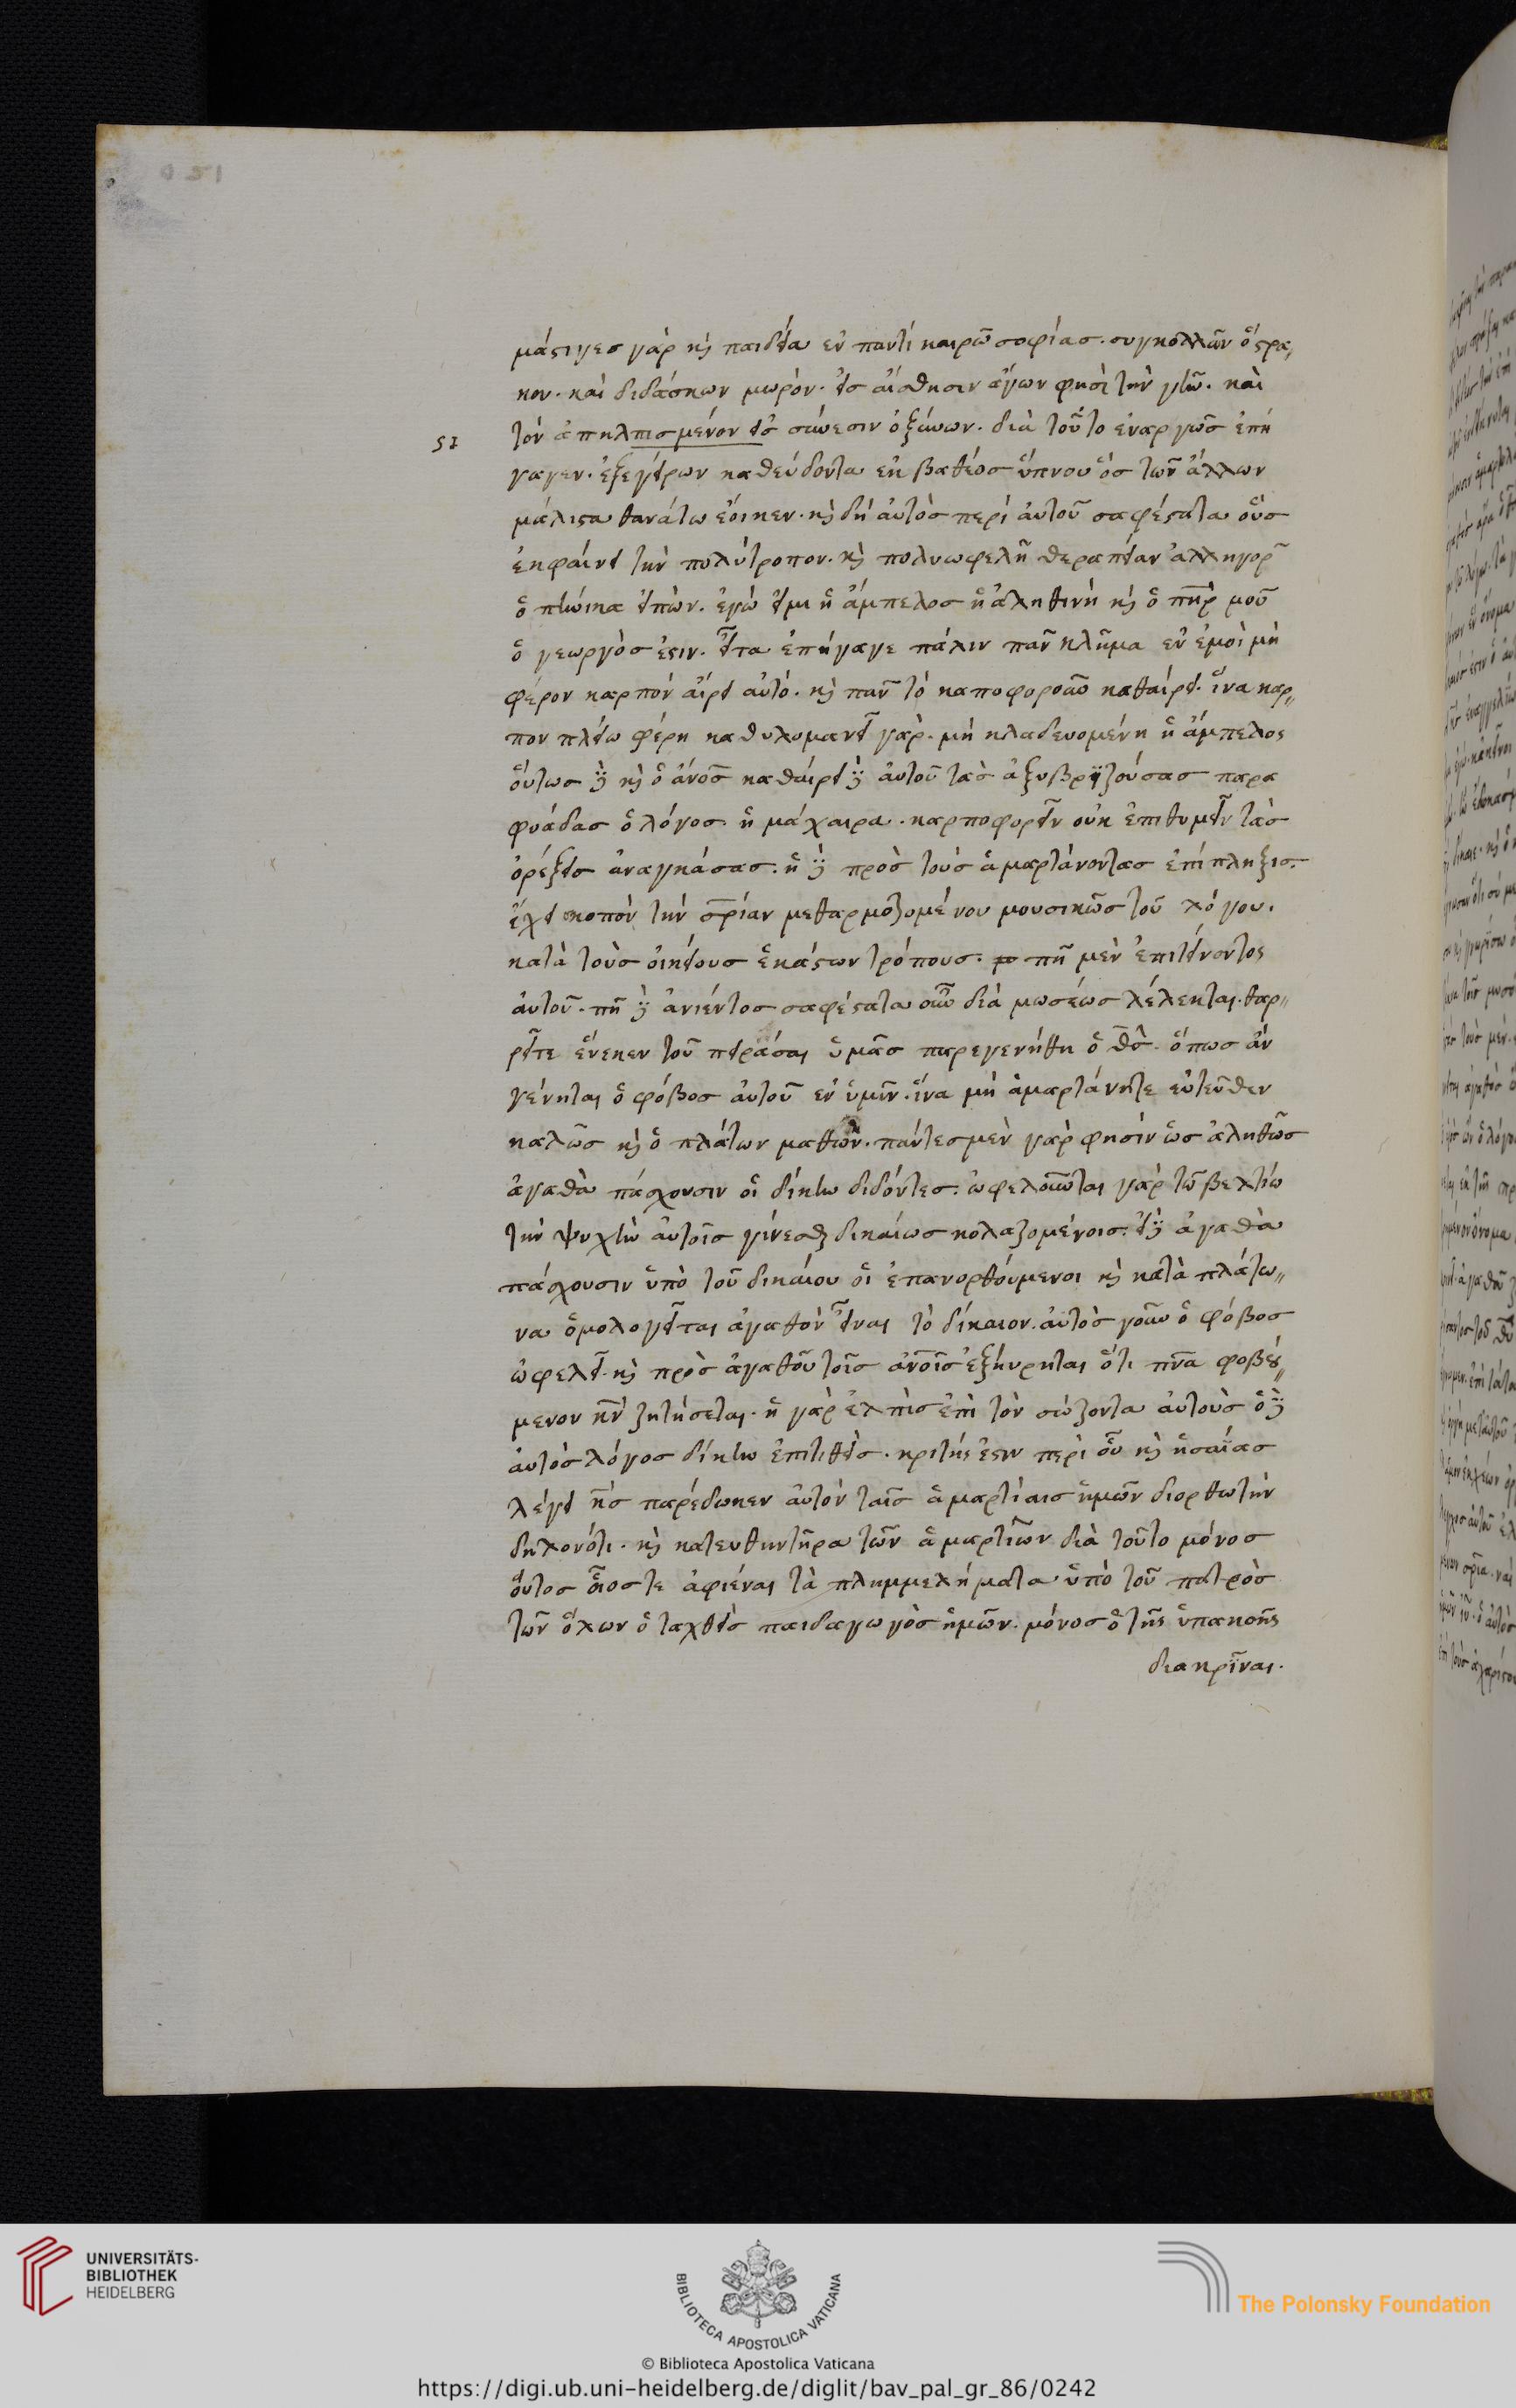 μάστιγες γὰρ καὶ παιδεία ἐν παντὶ καιρῶ σοφίας. συγκολλῶν ὄστρα,
κον. καὶ διδάσκων μωρόν. εἰς αἴσθησιν ἄγων φησὶ τὴν γῆν. καὶ
51 τὸν ἀπηλπισμένον εἰς σύνεσιν ὀξύνων. διὰ τοῦτο ἐναργῶς ἐπή
γαγεν. ἐξεγείρων καθεύδοντα ἐκ βαθέος ὕπνου ὃς τῶν ἄλλων
μάλιστα θανάτω ἔοικεν. καὶ δὴ αὐτὸς περὶ αὐτοῦ σαφέστατα οὗς
ἐκφαίνει τὴν πολύτροπον. καὶ πολυωφελῆ θεραπείαν ἀλληγορ
ὁ εἰπών. ἐγώ εἰμι ἡ ἄμπελος ἡ ἀληθινὴ καὶ ὁ πηρ μοῦ
ὁ γεωργὸς ἐστιν. εἶτα ἐπήγαγε πάλιν πᾶν κλῆμα ἐν ἐμοὶ μὴ
φέρον καρπὸν αἴρει αὐτό. καὶ πᾶν τὸ καρποφοροῦν καθαίρει. ἵνα καρ,,
πον πλείω φέρη καθυλομανεῖ γὰρ. μὴ κλαδευομένη ἡ ἄμπελος
οὕτως δὲ καὶ ὁ ἄνος καθαίρει δὲ αὐτοῦ τὰς ἐξυβριζούσας παρα
φυάδας ὁ λόγος. ἡ μάχαιρα. καρποφορεῖν οὐκ ἐπιθυμεῖν τὰς
ὀρέξεις ἀναγκάσας. ἡ δὲ πρὸς τοὺς ἁμαρτάνοντας ἐπίπληξις.
ἔχει σκοπὸν τὴν σρίαν μεθαρμοζομένου μουσικῶς τοῦ λόγου.
κατὰ τοὺς οἰκείους ἑκάστων τρόπους. πῆ μὲν ἐπιτείνοντος
αὐτοῦ. πῆ δὲ ἀνιέντος σαφέστατα οὖν διὰ μωσέως λέλεκται. θαρ,,
ρεῖτε ἕνεκεν τοῦ πειράσαι ὑμᾶς παρεγενήθη ὁ θς. ὅπως ἂν
γένηται ὁ φόβος αὐτοῦ ἐν ὑμῖν. ἵνα μὴ ἁμαρτάνητε ἐντεῦθεν
καλῶς καὶ ὁ πλάτων μαθών. πάντες μὲν γὰρ φησὶν ὡς ἀληθῶς
ἀγαθὰ πάσχουσιν οἱ δίκην διδόντες. ὠφελοῦνται γὰρ τῶ βελτίω
τὴν ψυχὴν αὐτοῖς γίνεσθαι δικαίως κολαζομένοις. εἰ δὲ ἀγαθὰ
πάσχουσιν ὑπὸ τοῦ δικαίου οἱ ἐπανορθούμενοι καὶ κατὰ πλάτω,,
να ὁμολογεῖται ἀγαθὸν εἶναι τὸ δίκαιον. αὐτὸς γοῦν ὁ φόβος
ὠφελεῖ. καὶ πρὸς ἀγαθοῦ τοῖς ἀνοῖς ἐξήυρηται ὅτι πνα φοβού,,
μενον κν ζητήσεται. ἡ γὰρ ἐλπὶς ἐπὶ τὸν σώζοντα αὐτοὺς ὁ δὲ
αὐτὸς λόγος δίκην ἐπιτιθεὶς. κριτής ἐστιν περὶ οὗ καὶ ἡσαΐας
λέγει κς παρέδωκεν αὐτὸν ταῖς ἁμαρτίαις ἡμῶν διορθωτὴν
δηλονότι. καὶ κατευθυντῆρα τῶν ἁμαρτιῶν διὰ τοῦτο μόνος
οὗτος οἷος τε ἀφιέναι τὰ πλημμελήματα ὑπὸ τοῦ πατρὸς
τῶν ὅλων ὁ ταχθεὶς παιδαγωγὸς ἡμῶν. μόνος ὁ τῆς ὑπακοῆς
διακρῖναι.
UNIVERSITÄTS-
BIBLIOTHEK
HEIDELBERG
BIBLIOTECA APOSTOLICA VATICANA
The Polonsky Foundation
© Biblioteca Apostolica Vaticana
https://digi.ub.uni-heidelberg.de/diglit/bav_pal_gr_86/0242